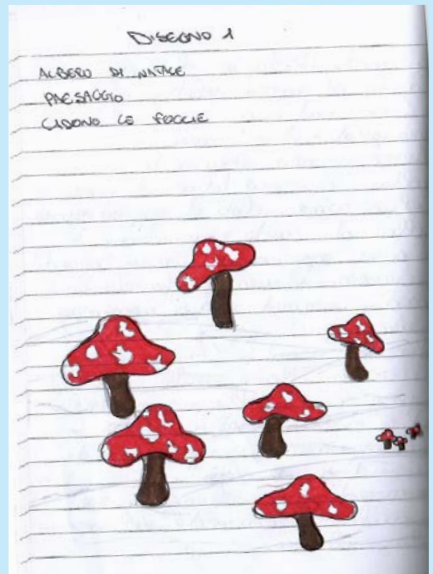 DISEGNO 1
ALBERO DI NATALE
PAESAGGIO
CADONO LE FOGLIE